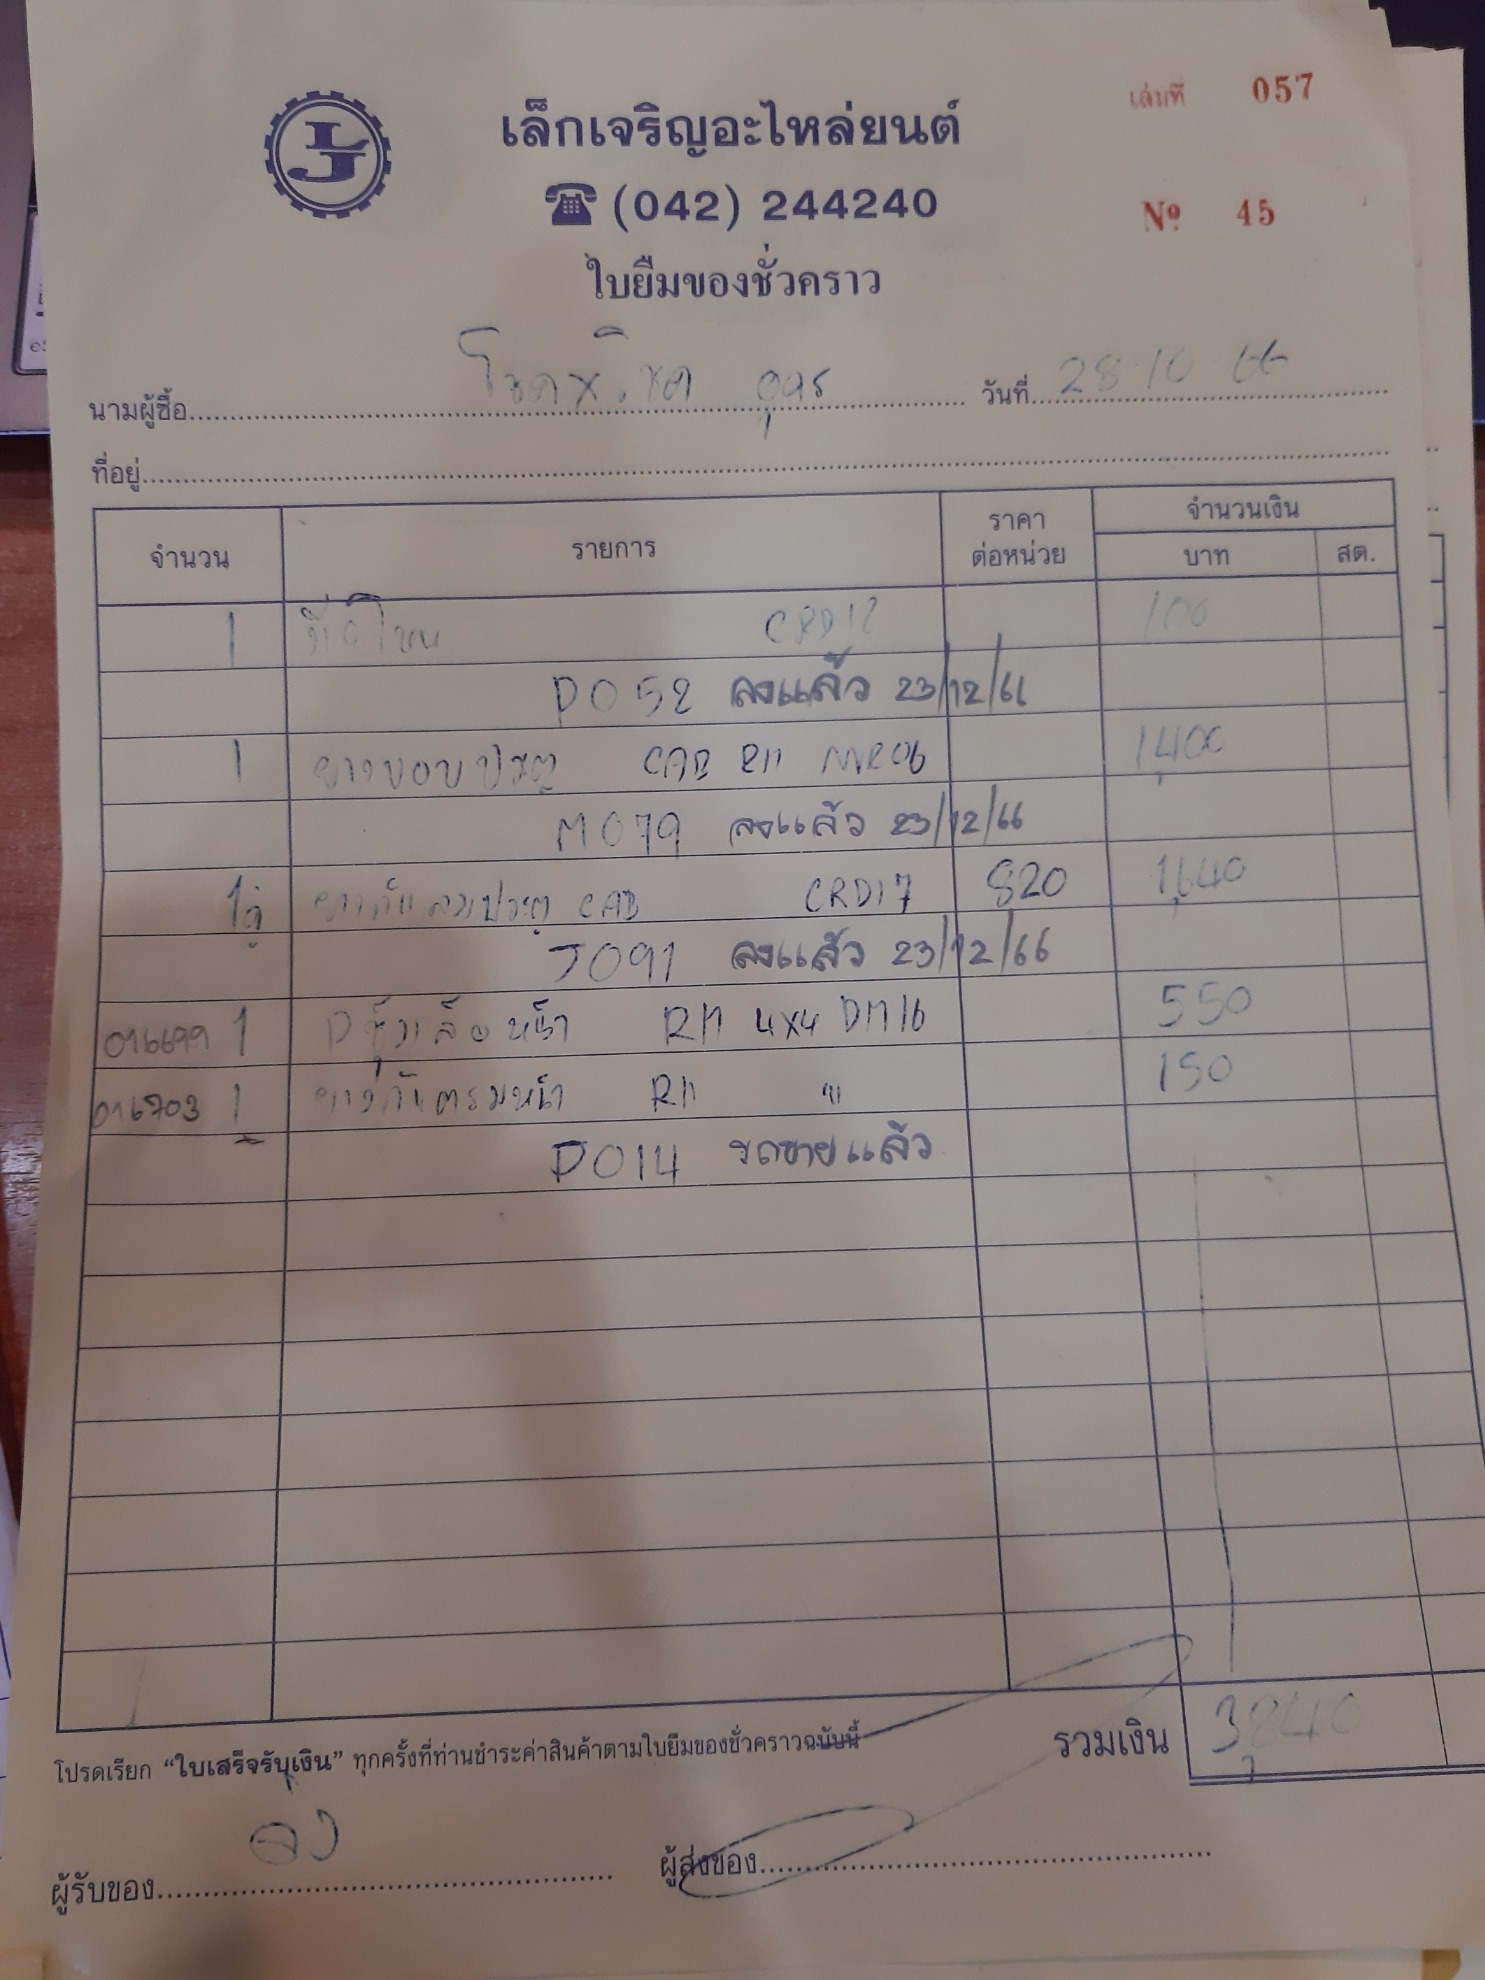 เล่มที่ 057
เล็กเจริญอะไหล่ยนต์
☎ (042) 244240
Nº 45
ใบยืมของชั่วคราว
นามผู้ซื้อ อุดร วันที่ 28 10 66
ที่อยู่
จำนวน รายการ ราคาต่อหน่วย จำนวนเงิน
บาท สต.
1 CRD12 100
D052 ลงแล้ว 23/12/66
1 ยางขอบประตู CAB RH NVR06 1,400
M079 ลงแล้ว 23/12/66
1คู่ CAB CRD17 820 1,640
J091 ลงแล้ว 23/12/66
016699 1 RH 4x4 DM16 550
016703 1 RH " 150
D014 รถขายแล้ว
รวมเงิน 3,840
โปรดเรียก “ใบเสร็จรับเงิน” ทุกครั้งที่ท่านชำระค่าสินค้าตามใบยืมของชั่วคราวฉบับนี้
ผู้รับของ ผู้ส่งของ